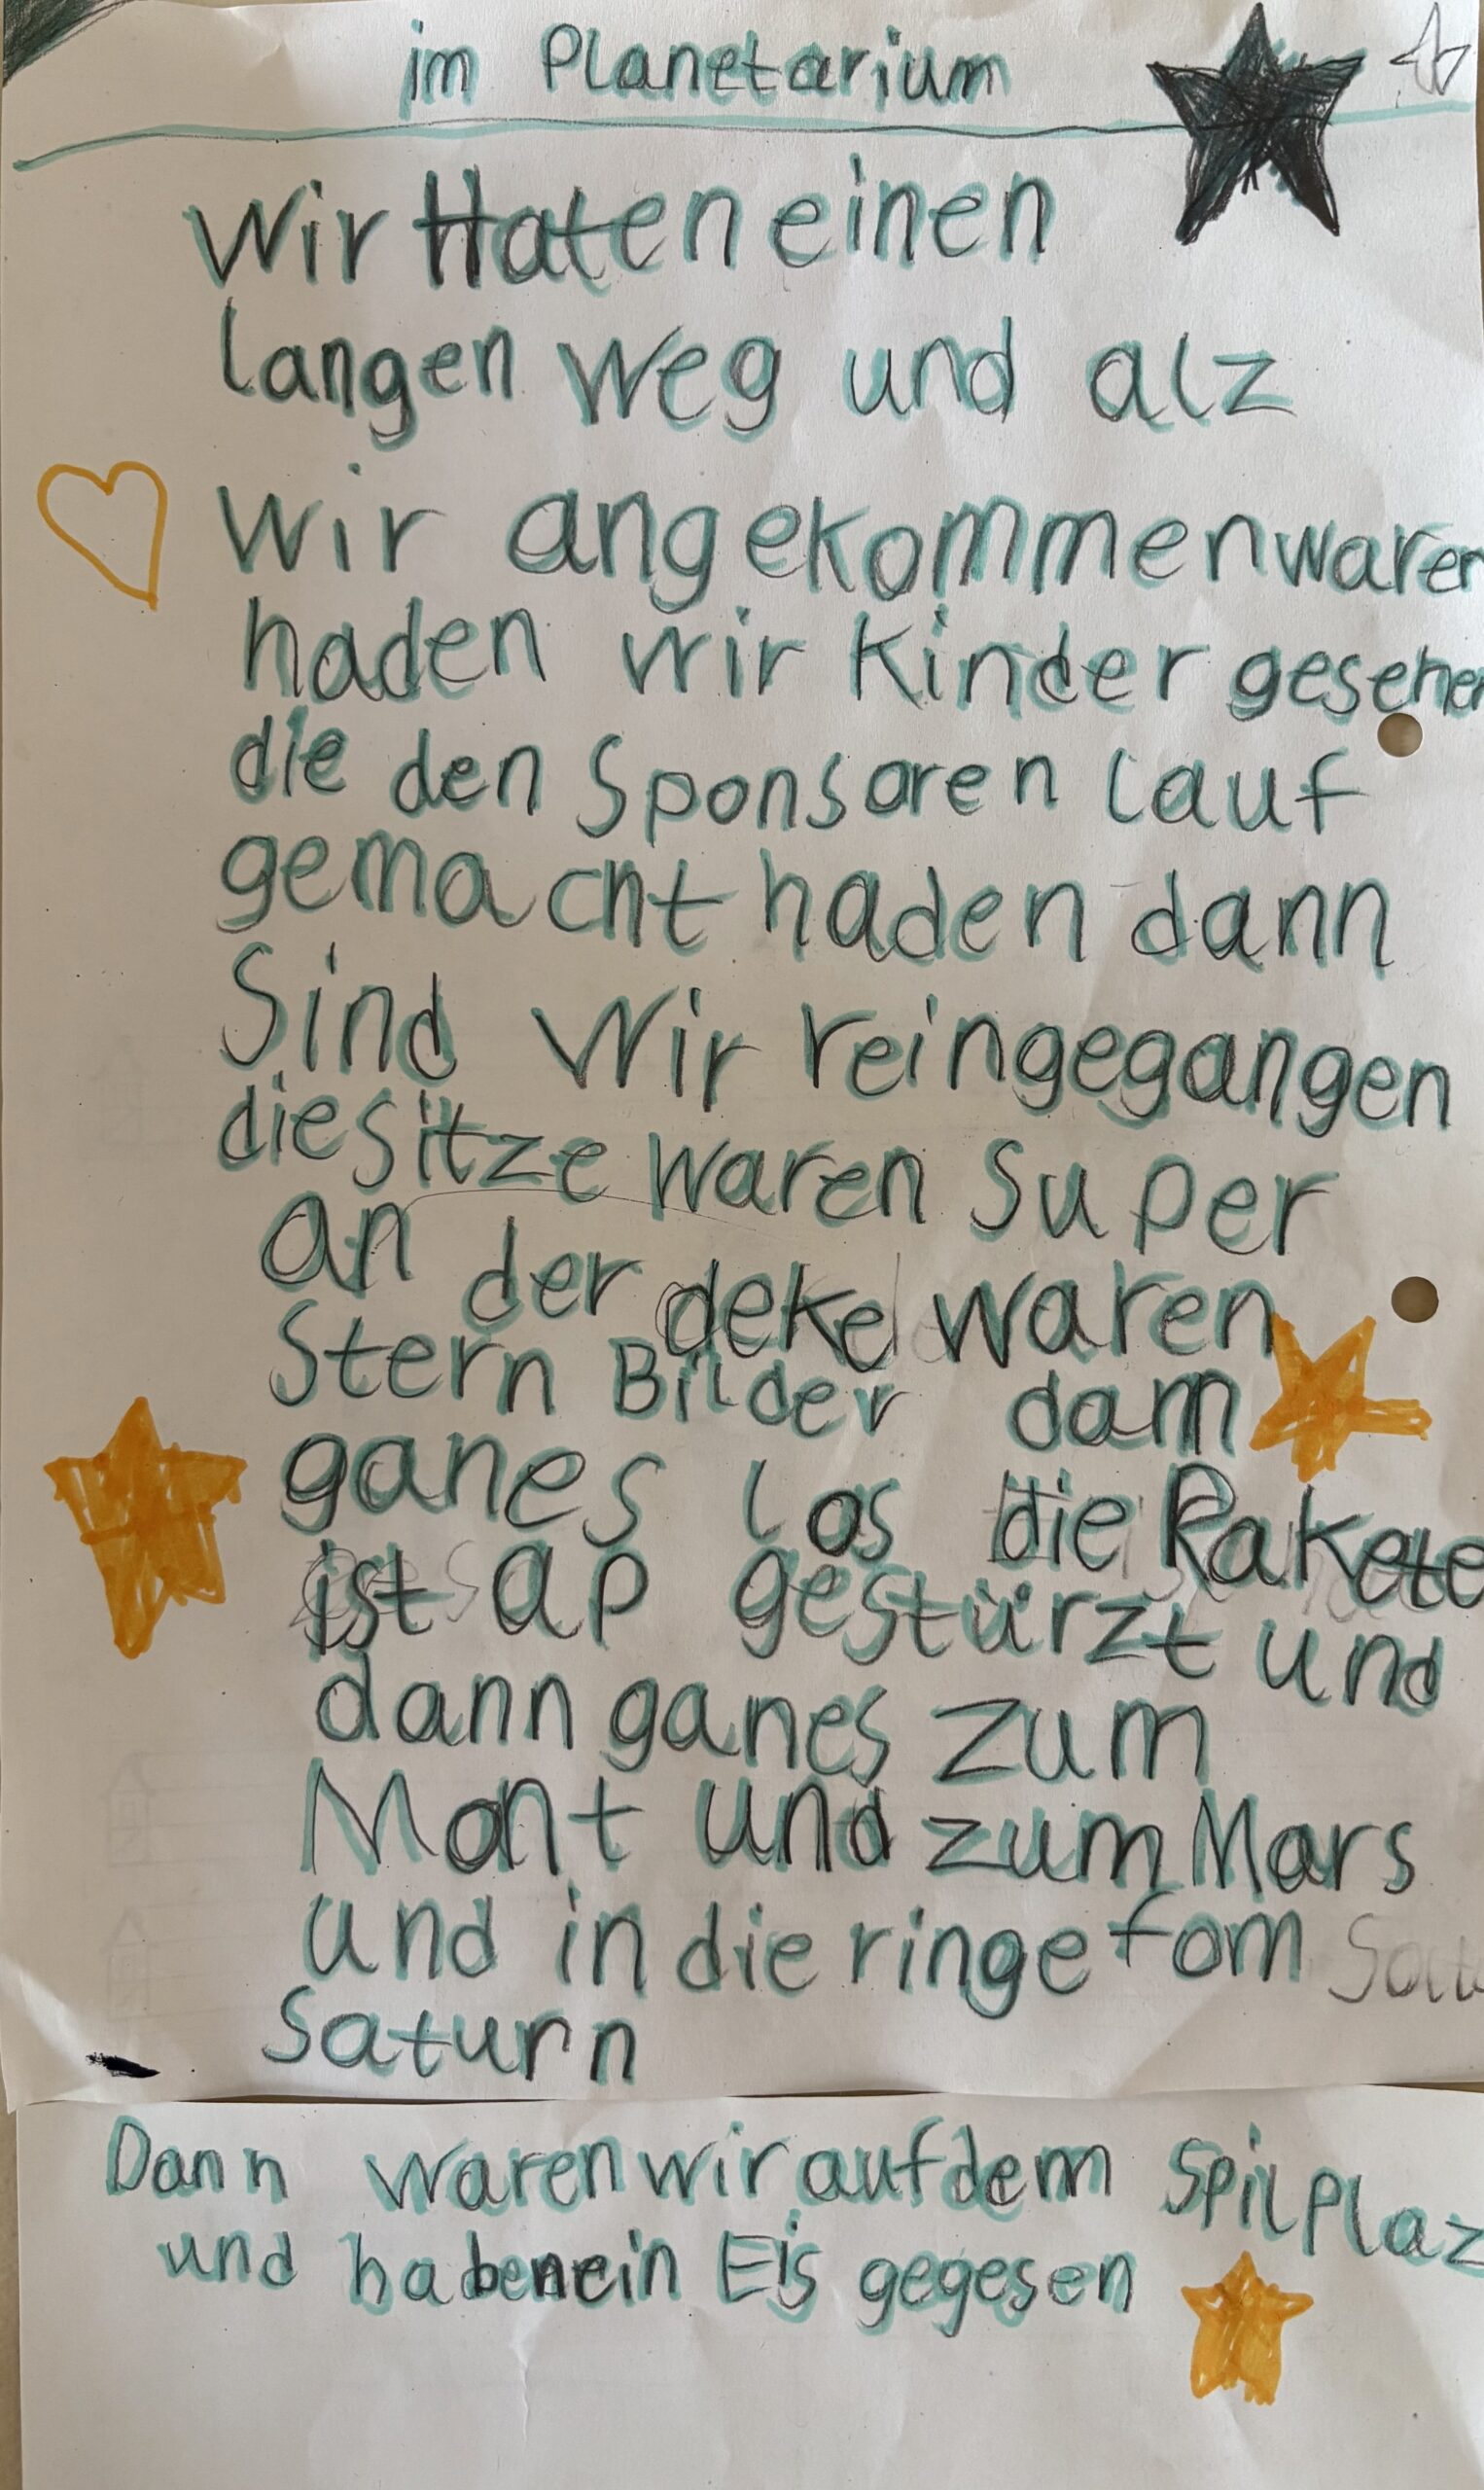 im Planetarium
Wir Haten einen
langen Weg und alz
wir angekommen waren
haden wir Kinder gesehen
die den Sponsoren lauf
gemacht haden dann
Sind Wir reingegangen
die sitze waren super
an der deke waren
Stern Bilder dann
ganes los die Rakete
ist ap gestürzt und
dann ganes zum
Mont und zum Mars
und in die ringe fom
Saturn
Dann waren wir auf dem SpilPlaz
und haben ein Eis gegesen